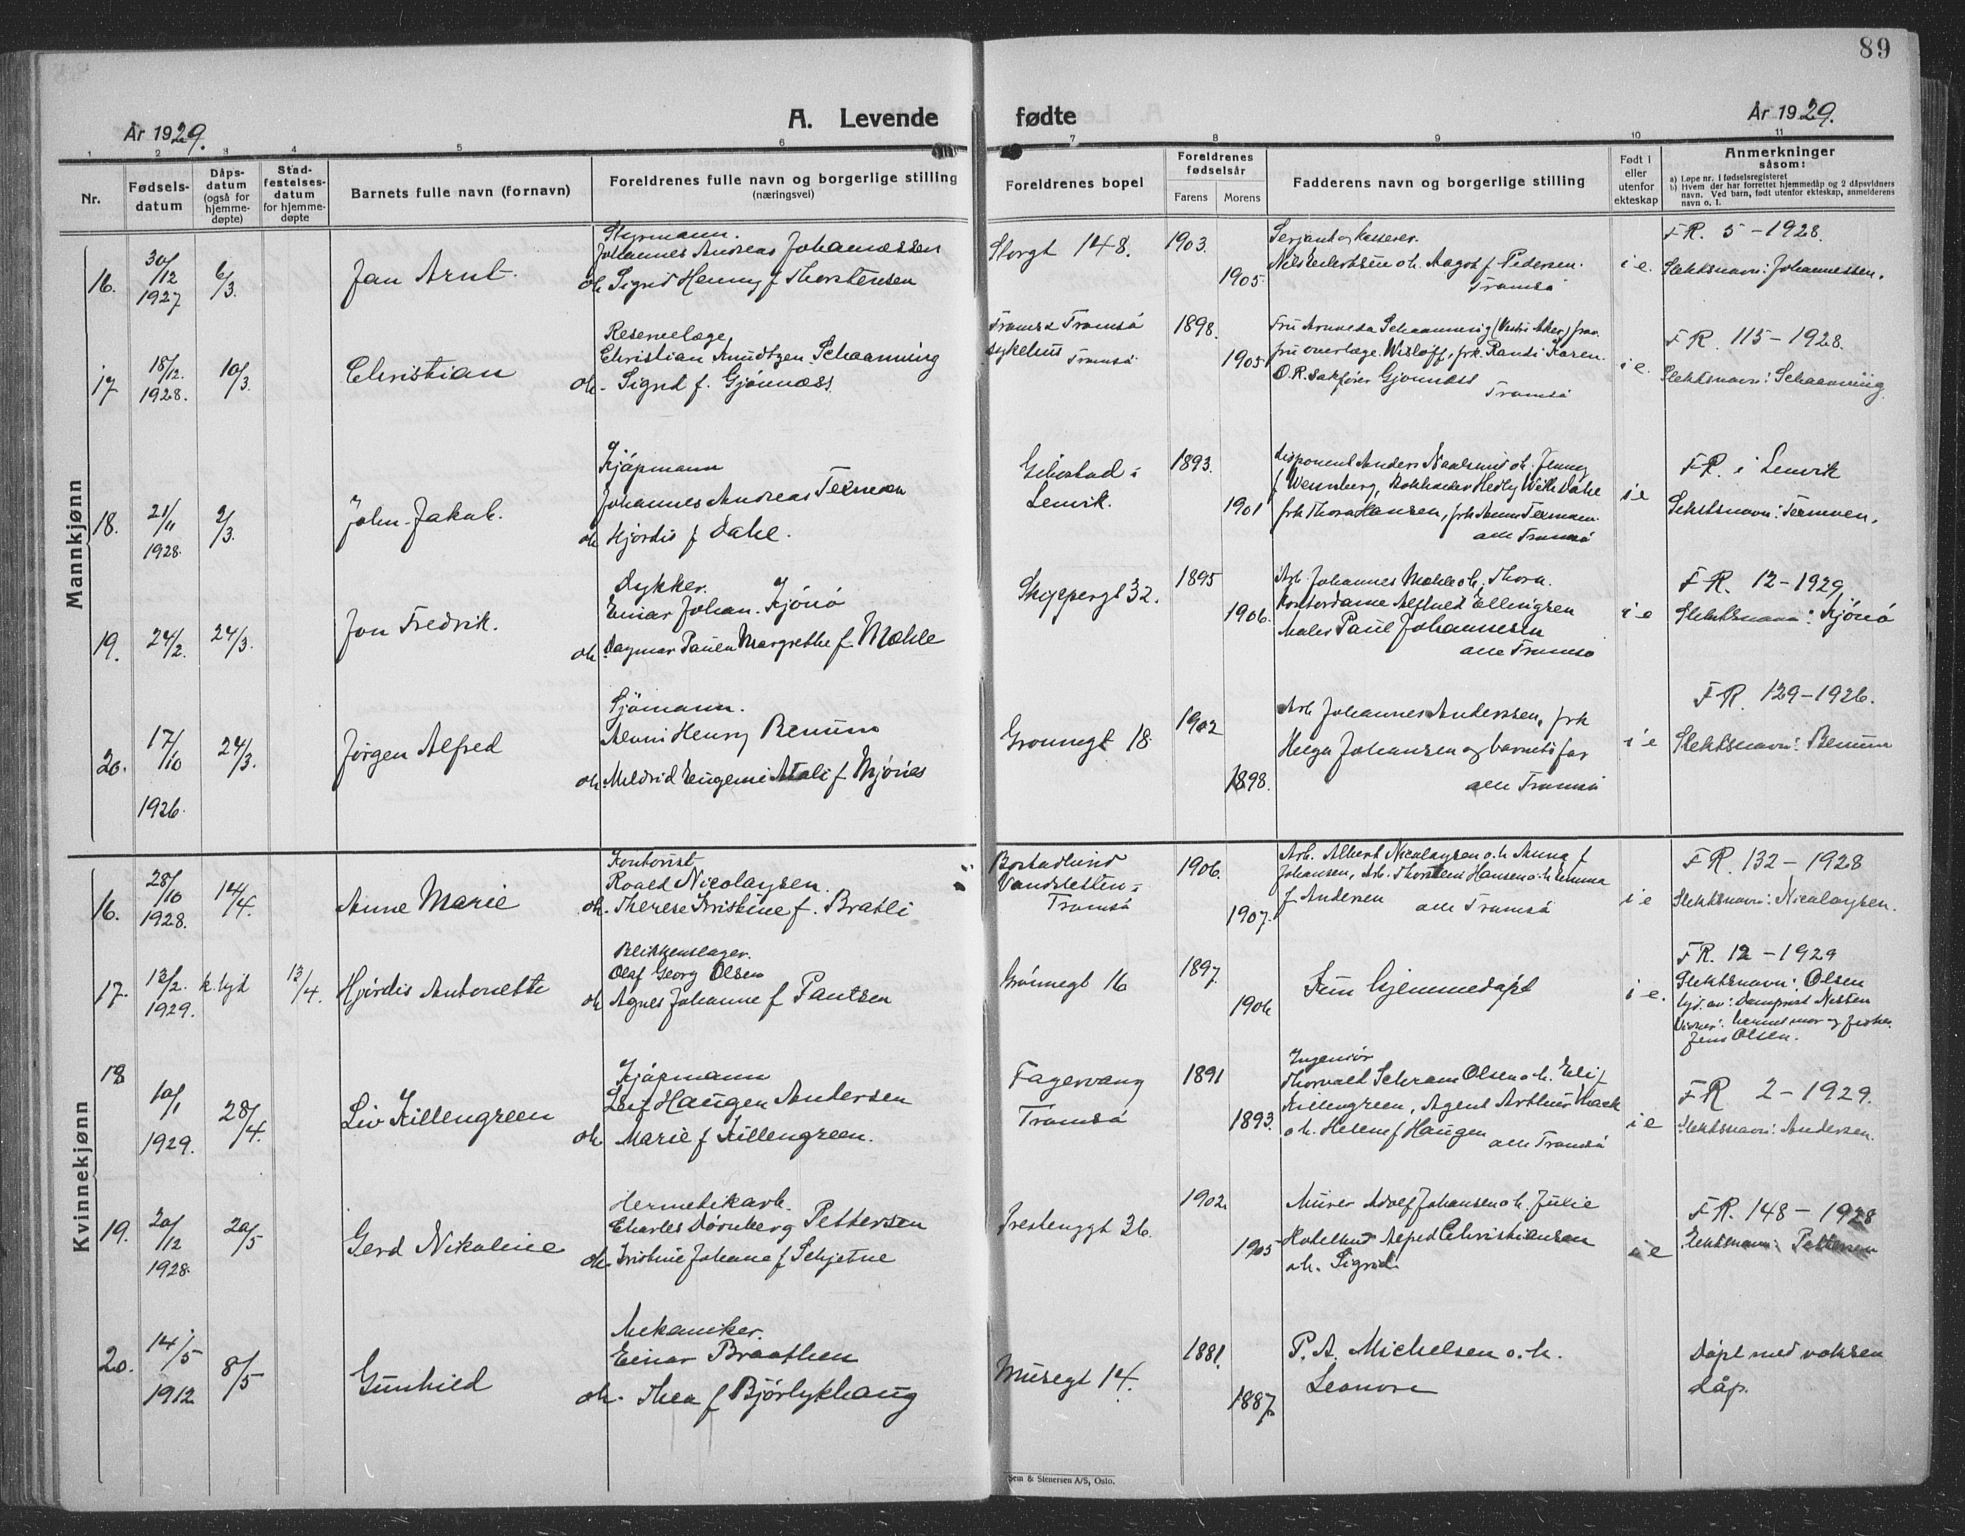 89
A. Levende fødte
År 1929.
År 1929.
1 2 3 4 5 6 7 8 9 10 11
Nr.
Fødsels-
datum
Dåps-
datum
(også for
hjemme-
døpte)
Stad-
festelses-
datum
for hjemme-
døpte
Barnets fulle navn (fornavn)
Foreldrenes fulle navn og borgerlige stilling
(næringsvei)
Foreldrenes bopel
Foreldrenes
fødselsår
Farens Morens
Fadderens navn og borgerlige stilling
Født i
eller
utenfor
ekteskap
Anmerkninger
såsom:
a) Løpe nr. i fødselsregisteret
b) Hvem der har forrettet hjemmedåp og 2 dåpsvidners
navn. Ved barn, født utenfor ekteskap, anmelderens
navn o. l.
Mannkjønn
16.
30/12
1927
6/3.
Jan Arnt.
Styrmann.
Johannes Andreas Johannessen
oh. Sigrid Henny f Thorstensen
Storgt 148.
1903.
1905.
Serjant og kasserer.
Nils Edvardsen o.h. Aagot f Pedersen.
Tromsö
i e.
F.R. 5 - 1928.
Slektsnavn: Johannessen.
17
18/12.
1928.
10/3.
Christian
Reservelæge
Christian Knudtzen Schaanning
oh. Sigrid f. Gjönnæss
Troms & Tromsö
sykehus
Tromsö
1898.
1905
fru overlæge Wisløff, frk. Randi Karen
O.R. sakfører Gjönnæss
Tromsö
i e.
F R. 115 - 1928.
Slektsnavn: Schaanning
18.
21/11
1928.
2/3.
John Jakob.
Kjöpmann
Johannes Andreas Termoen
oh Hjördis f Dahl.
Gibostad i
Lenvik.
1893.
1901
frk Thora Hansen, frk Anna Termoen.
alle Tromsö
i e
F.R. i Lenvik
Slektsnavn: Termoen.
19.
24/2.
24/3.
Jon Fredrik.
Dykker.
Einar Johan Kjönö
oh. Dagmar Paula Margrethe f Mæhle
Skippergt 32.
1895
1906.
Arb. Johannes Mæhle o.h. Thora.
Kontordame Alfhild Ellingsen
Maler Paul Johannesen
alle Tromsö
i e
F.R. 12 - 1929,
Slektsnavn: Kjönö
20.
17/10
1926.
24/3.
Jörgen Alfred
Sjömann.
Henry Benum
oh. Meldrid Eugenie Atali f Mjönes
Grönnegt 18
1902
1898.
Arb Johannes Anderssen, frk
Helga Johansen og barnets far
alle Tromsö
i e
F.R. 129 - 1926.
Slektsnavn: Benum
Kvinnekjønn
16.
28/10
1928.
14/4.
Anne Marie
Kontorist
Roald Nicolaysen.
oh. Therese Kristine f. Bratli
Bostadlund
Vandsletten
Tromsö
1906.
1907.
Arb. Albert Nicolaysen o.h. Anna f
Johansen, Arb. Thorstein Hansen o.h. Emma
f Andersen
alle Tromsö
i e
F R. 132 - 1928
Slektsnavn: Nicolaysen.
17.
13/2.
1929.
13/4.
Hjördis Antonette
Blikkenslager.
Olaf Georg Olsen
oh Agnes Johanne f Pantsen
Grönnegt 16
1897.
1906
Hjemmedöpt
i e.
F R. 12 - 1929
Slektsnavn: Olsen
Vidner: barnets mor og fisker
Jens Olsen.
18
10/1
1929.
28/4.
Liv Killengreen
Kjöpmann
Leif Haugen Andersen
oh Marie f Killengreen.
Fagervang
Tromsö
1891
1893.
Ingeniör
Thorvald Schram Olsen o.h. Eli f
Killengreen, Agent Arthur Hack
o.h. Helene f Haugen
alle Tromsö
i e
F R 2 - 1929.
Slektsnavn: Andersen.
19.
20/12
1928.
20/5
Gerd Nikoline
Hermetikarb.
Charles Dörnberg Pettersen
oh. Kristine Johane f Schjetne
Prestenggt 26.
1902.
1905
Murer Adolf Johansen o.h. Julie
Alfred Christiansen
o.h. Sigrid.
i e
F R. 148 - 1928
Slektsnavn: Pettersen
20.
14/5
1912.
8/5
Gunhild
Mekaniker.
Einar Braathen
oh. Thea f Bjørlykhaug
Muregt 14.
1881.
1887.
P. A. Michelsen o.h.
Leonore
Döpt med voksen
dåp.
Sem & Stenersen A/S, Oslo.